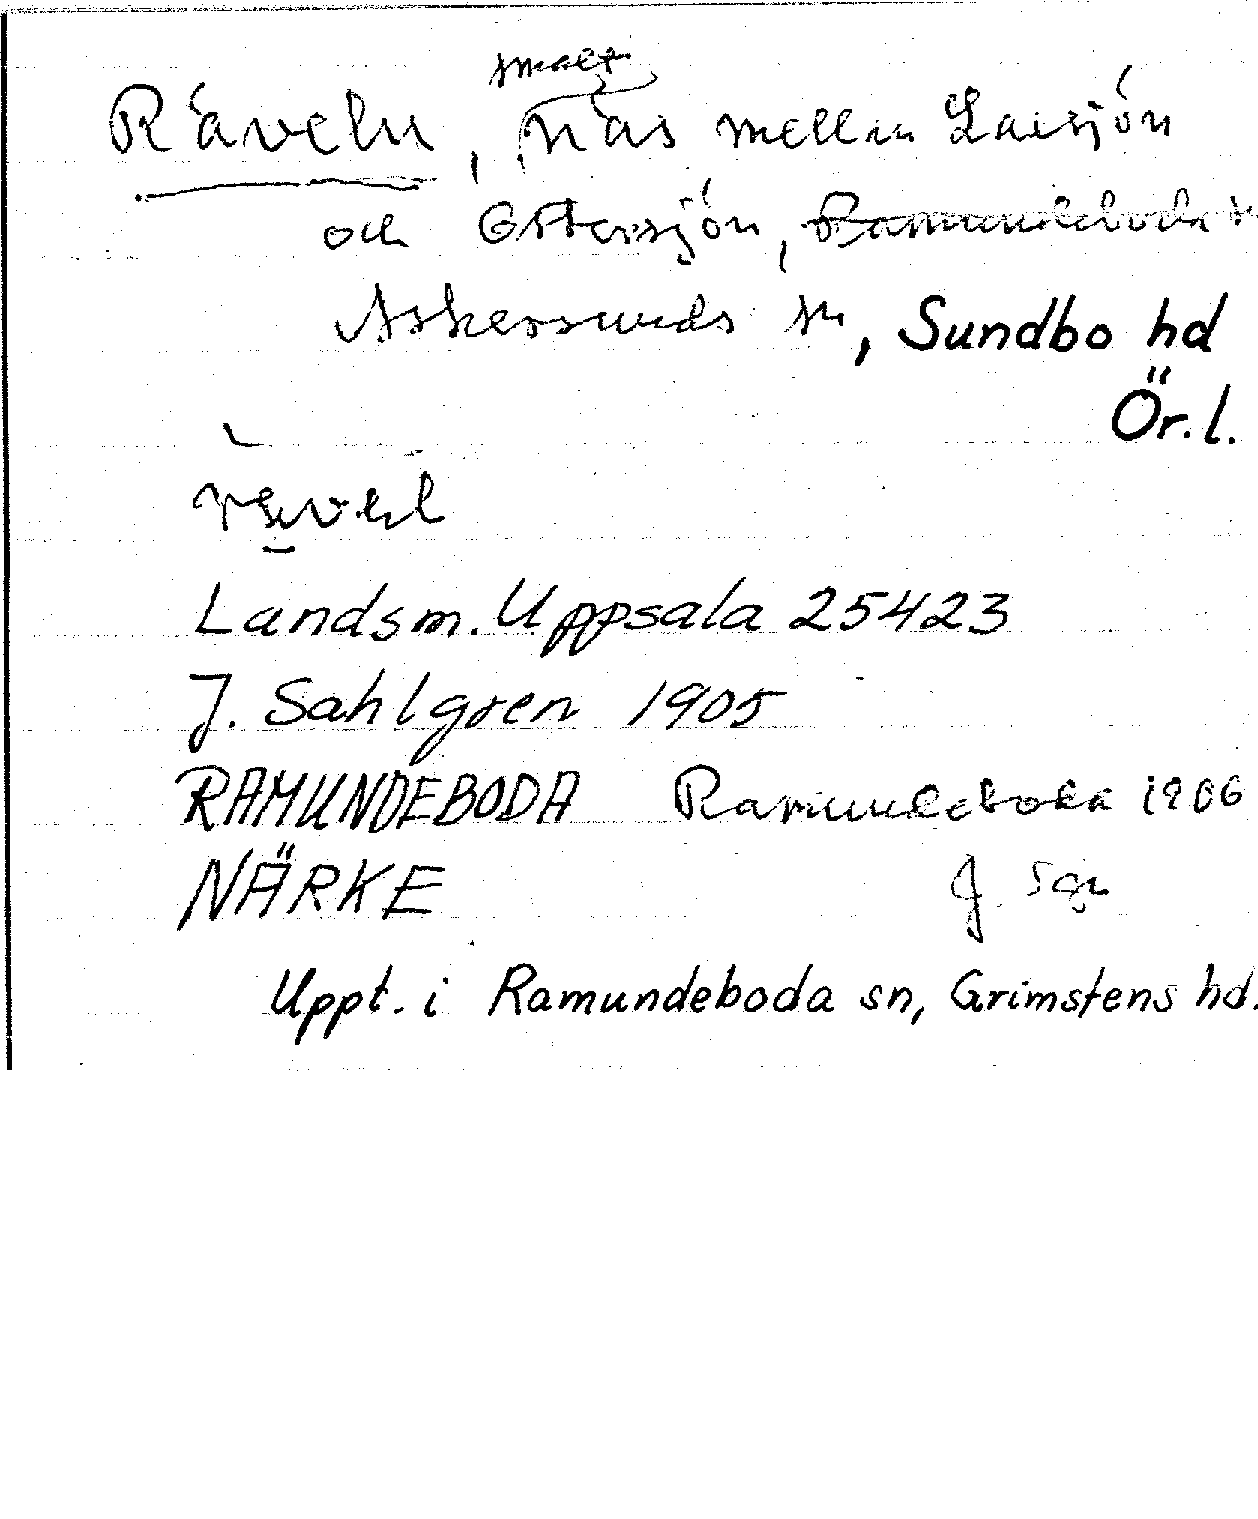 Räveln, smalt näs mellan Laxsjön
och Ottersjön, Ramundeboda sn
Askersunds sn, Sundbo hd
Ör. l.
Landsm. Uppsala 25423
J. Sahlgren 1905
RAMUNDEBODA Ramundeboda 1906
NÄRKE J. Sgn
Uppt. i Ramundeboda sn, Grimstens hd.